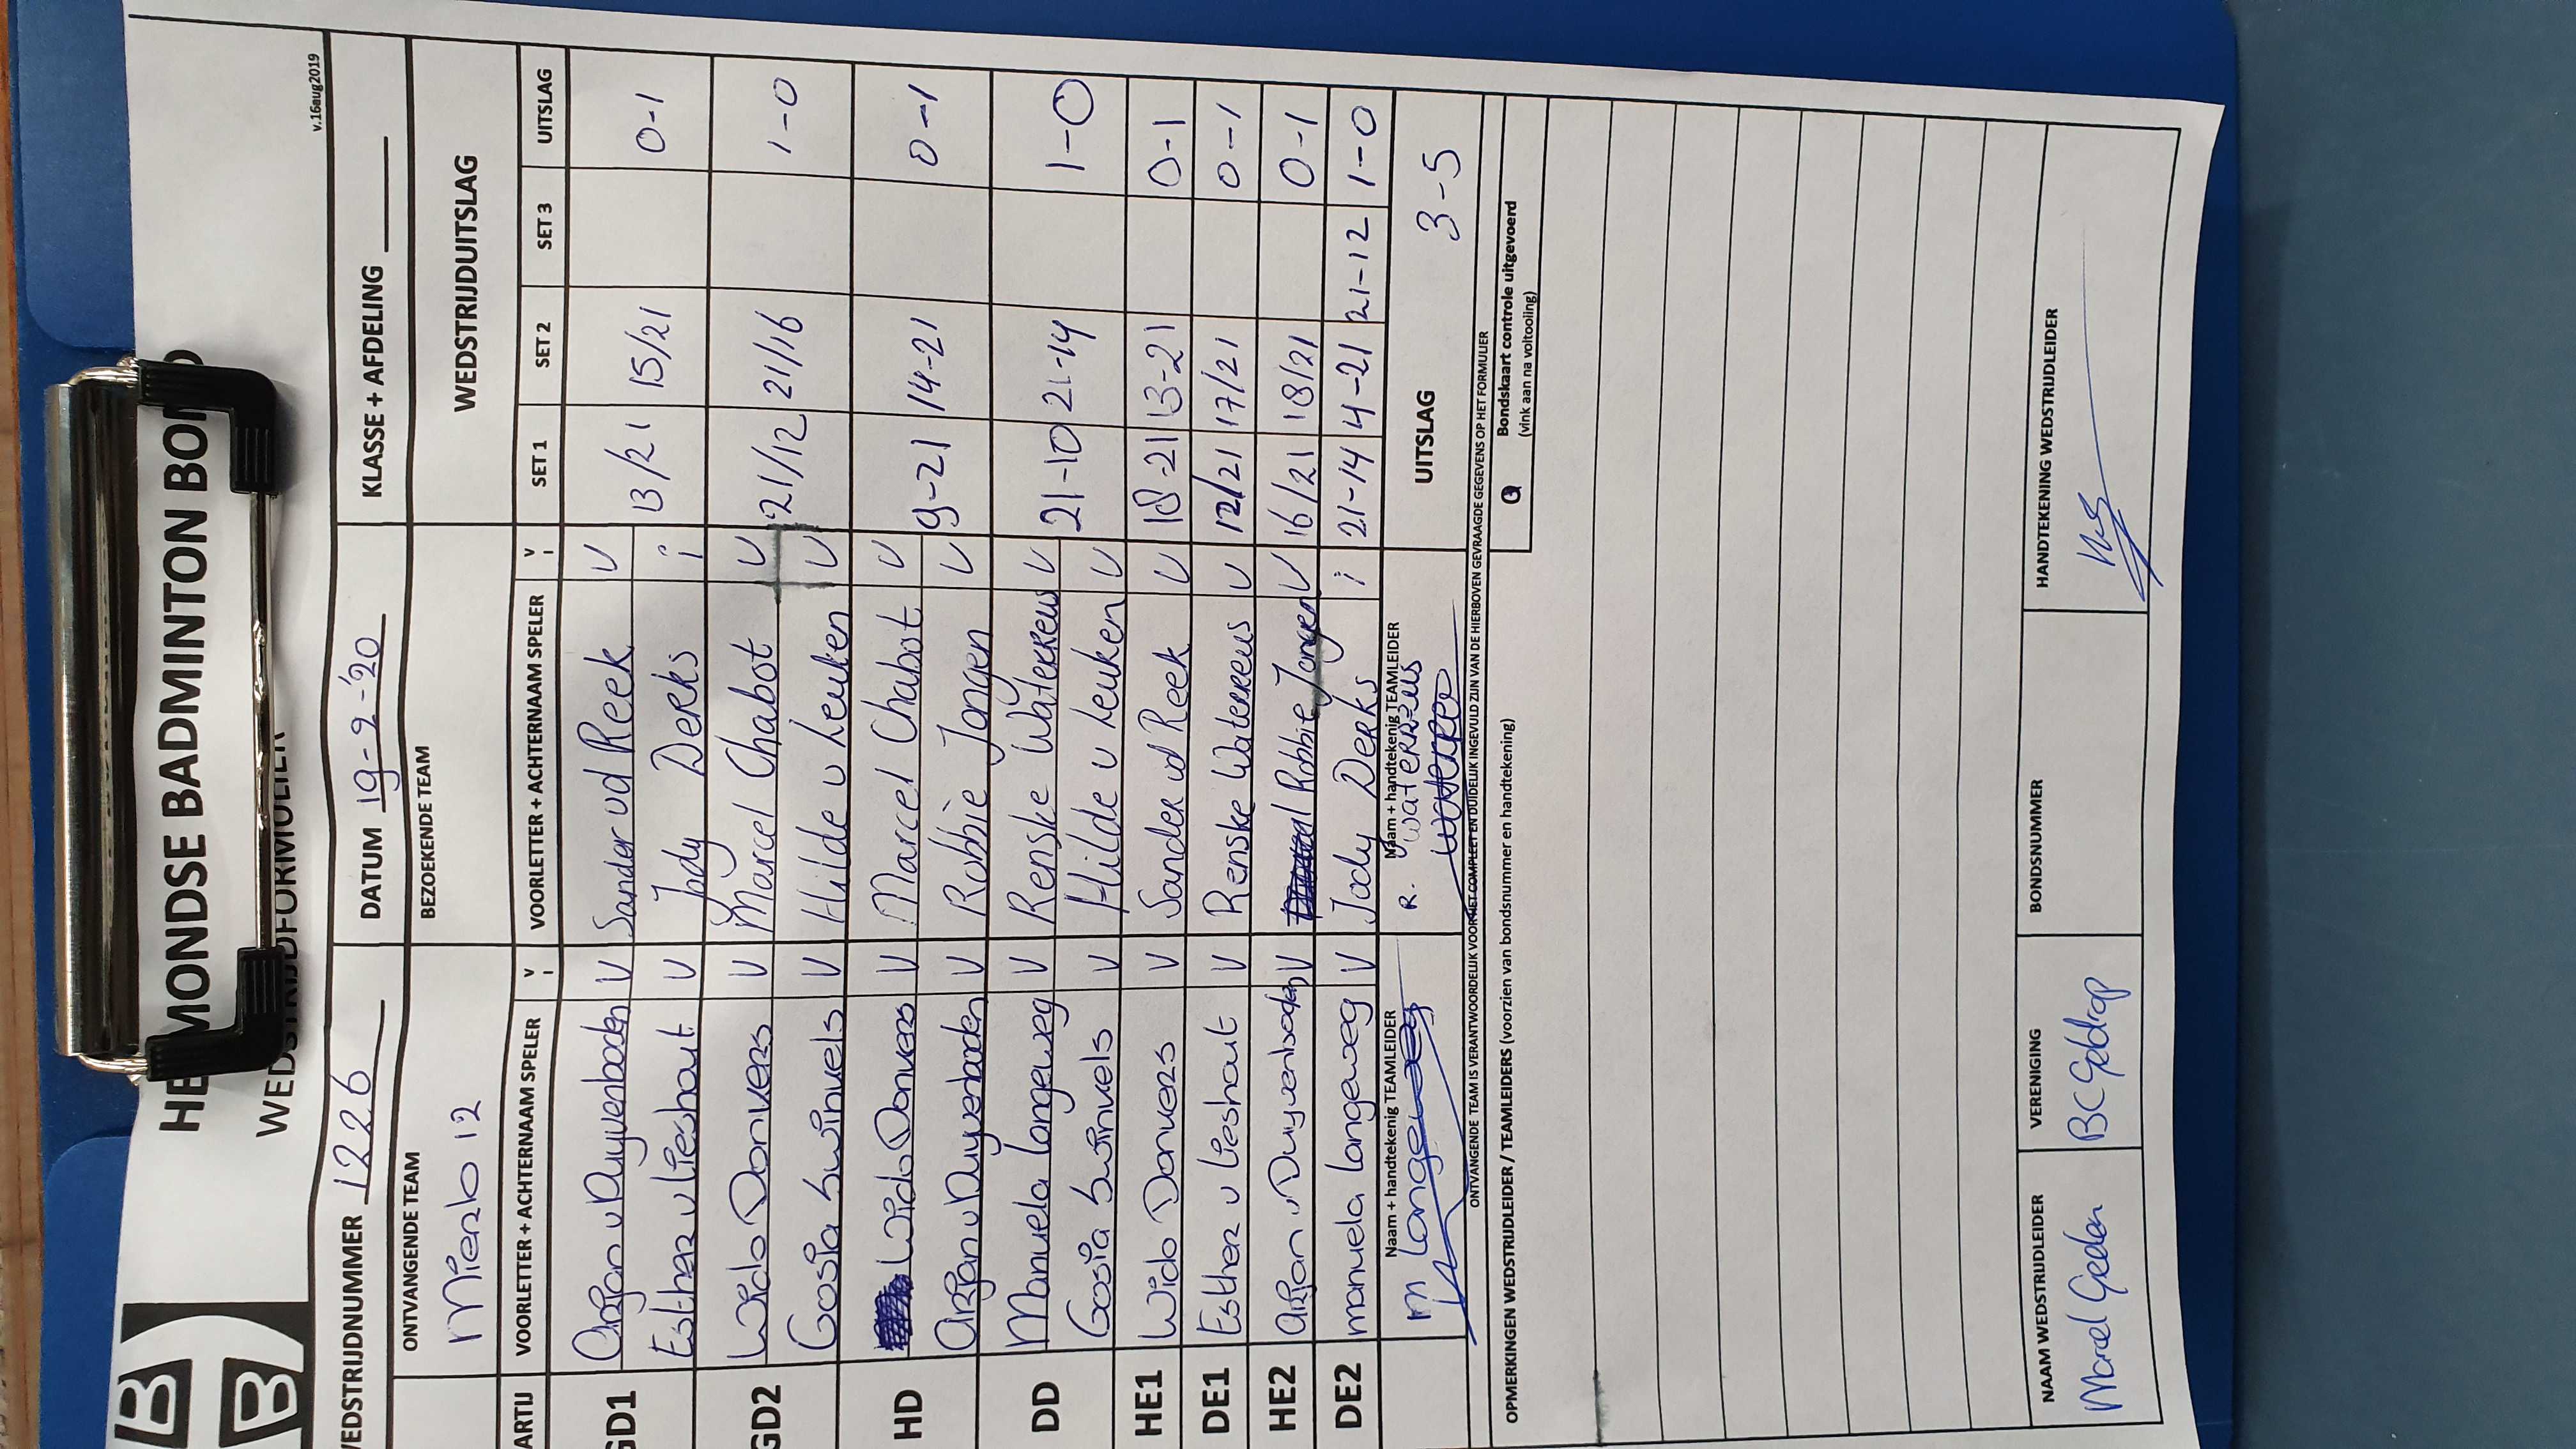 HELMONDSE BADMINTON BOND
WEDSTRIJDFORMULIER
v.16aug2019
WEDSTRIJDNUMMER 1226 DATUM 19-9-'20 KLASSE + AFDELING
ONTVANGENDE TEAM BEZOEKENDE TEAM WEDSTRIJDUITSLAG
Mierlo 12
PARTIJ VOORLETTER + ACHTERNAAM SPELER V I VOORLETTER + ACHTERNAAM SPELER V I SET 1 SET 2 SET 3 UITSLAG
GD1 Arjan v Duyvenboden V Sander vd Reek V 13/21 15/21 0-1
Esther v Lieshout V Jody Derks i
GD2 Wido Donvers V Marcel Chabot V 21/12 21/16 1-0
Gosia Swinkels V Hilde v Leuken V
HD Wido Donvers V Marcel Chabot V 9-21 14-21 0-1
Arjan v Duyvenboden V Robbie Jongen V
DD Manuela Langeweg V Renske Waterreus V 21-10 21-14 1-0
Gosia Swinkels V Hilde v Leuken V
HE1 Wido Donvers V Sander vd Reek V 18-21 13-21 0-1
DE1 Esther v Lieshout V Renske Waterreus V 12/21 17/21 0-1
HE2 Arjan v Duyvenboden V Robbie Jongen V 16/21 18/21 0-1
DE2 Manuela Langeweg V Jody Derks i 21-14 4-21 21-12 1-0
Naam + handtekenig TEAMLEIDER Naam + handtekenig TEAMLEIDER UITSLAG 3-5
M Langeweg R. Waterreus
ONTVANGENDE TEAM IS VERANTWOORDELIJK VOOR HET COMPLEET EN DUIDELIJK INGEVULD ZIJN VAN DE HIERBOVEN GEVRAAGDE GEGEVENS OP HET FORMULIER
OPMERKINGEN WEDSTRIJDLEIDER / TEAMLEIDERS (voorzien van bondsnummer en handtekening)
Bondskaart controle uitgevoerd
(vink aan na voltooling)
NAAM WEDSTRIJDLEIDER VERENIGING BONDSNUMMER HANDTEKENING WEDSTRIJDLEIDER
Marcel Geelen BC Geldrop